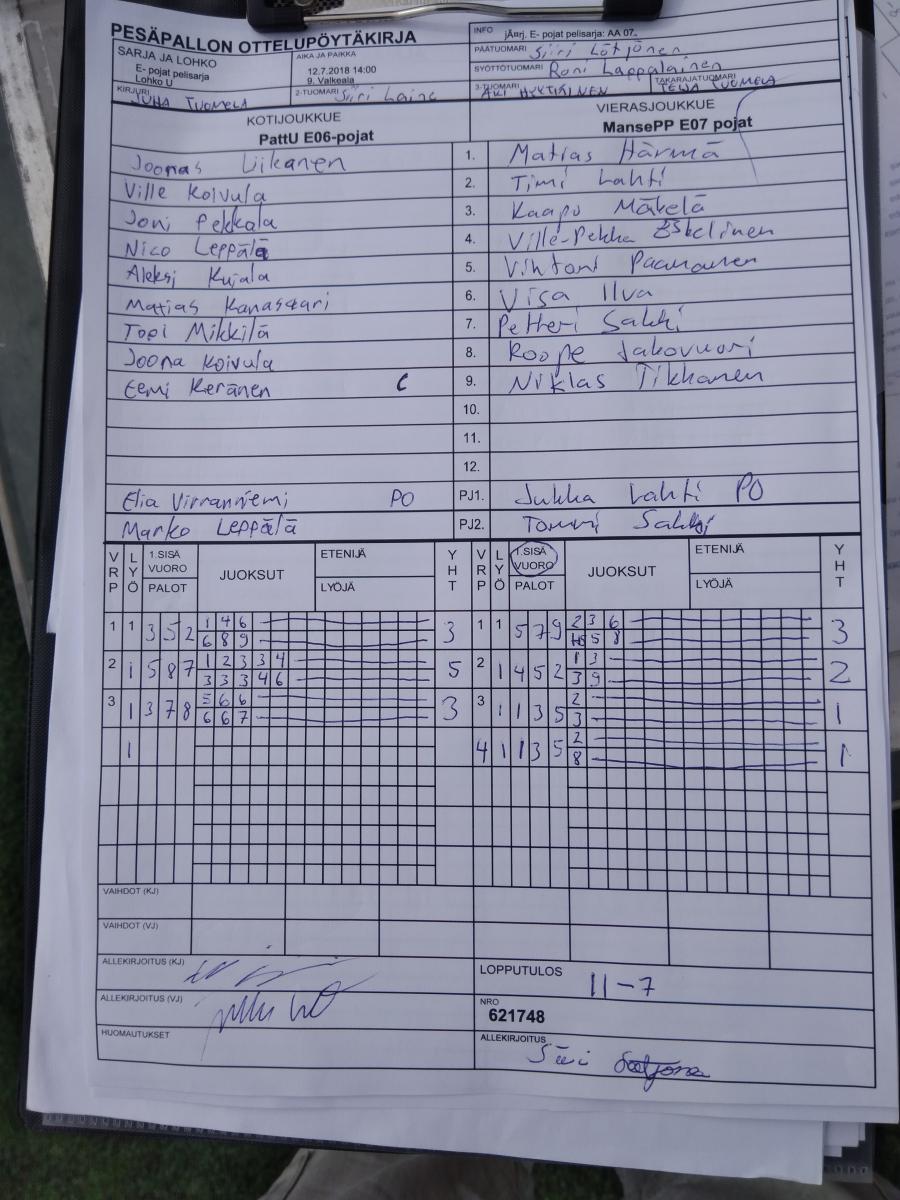 PESÄPALLON OTTELUPÖYTÄKIRJA
INFO jÄrrj. E- pojat pelisarja: AA 07.
SARJA JA LOHKO
E- pojat pelisarja
Lohko U
AIKA JA PAIKKA
12.7.2018 14:00
9. Valkeala
PÄÄTUOMARI Siiri Lötjönen
SYÖTTÖTUOMARI Roni Lappalainen
KIRJURI JUHA TUOMELA
2-TUOMARI Siiri Laine
3-TUOMARI AKI
TAKARAJATUOMARI TUOMELA
KOTIJOUKKUE
PattU E06-pojat
VIERASJOUKKUE
MansePP E07 pojat
Joonas Liikanen 1. Matias Härmä
Ville Koivula 2. Timi Lahti
Joni Pekkala 3. Kaapo Mäkelä
Nico Leppälä 4. Ville-Pekka Eskelinen
Aleksi Kujala 5. Vihtori Paananen
Matias Kanasaari 6. Visa Ilva
Topi Mikkilä 7. Petteri Sakki
Joona Koivula 8. Roope Jakovuori
Eemi Keränen C 9. Niklas Tikkanen
10.
11.
12.
Elia Virranniemi PO PJ1. Jukka Lahti PO
Marko Leppälä PJ2. Tommi Sakki
VRP LYÖ 1.SISÄ VUORO PALOT JUOKSUT ETENIJÄ LYÖJÄ YHT VRP LYÖ 1.SISÄ VUORO PALOT JUOKSUT ETENIJÄ LYÖJÄ YHT
1 1 3 5 2 1 4 6 3 1 1 5 7 9 2 3 6 3
6 8 9 5 8
2 1 5 8 7 1 2 3 3 4 5 2 1 4 5 2 1 3 2
3 3 3 4 6 3 9
3 1 3 7 8 5 6 6 3 3 1 1 3 5 2 1
6 6 7 3
1 4 1 1 3 5 2 1
8
VAIHDOT (KJ)
VAIHDOT (VJ)
ALLEKIRJOITUS (KJ)
LOPPUTULOS 11-7
ALLEKIRJOITUS (VJ)
NRO
621748
HUOMAUTUKSET
ALLEKIRJOITUS Siiri